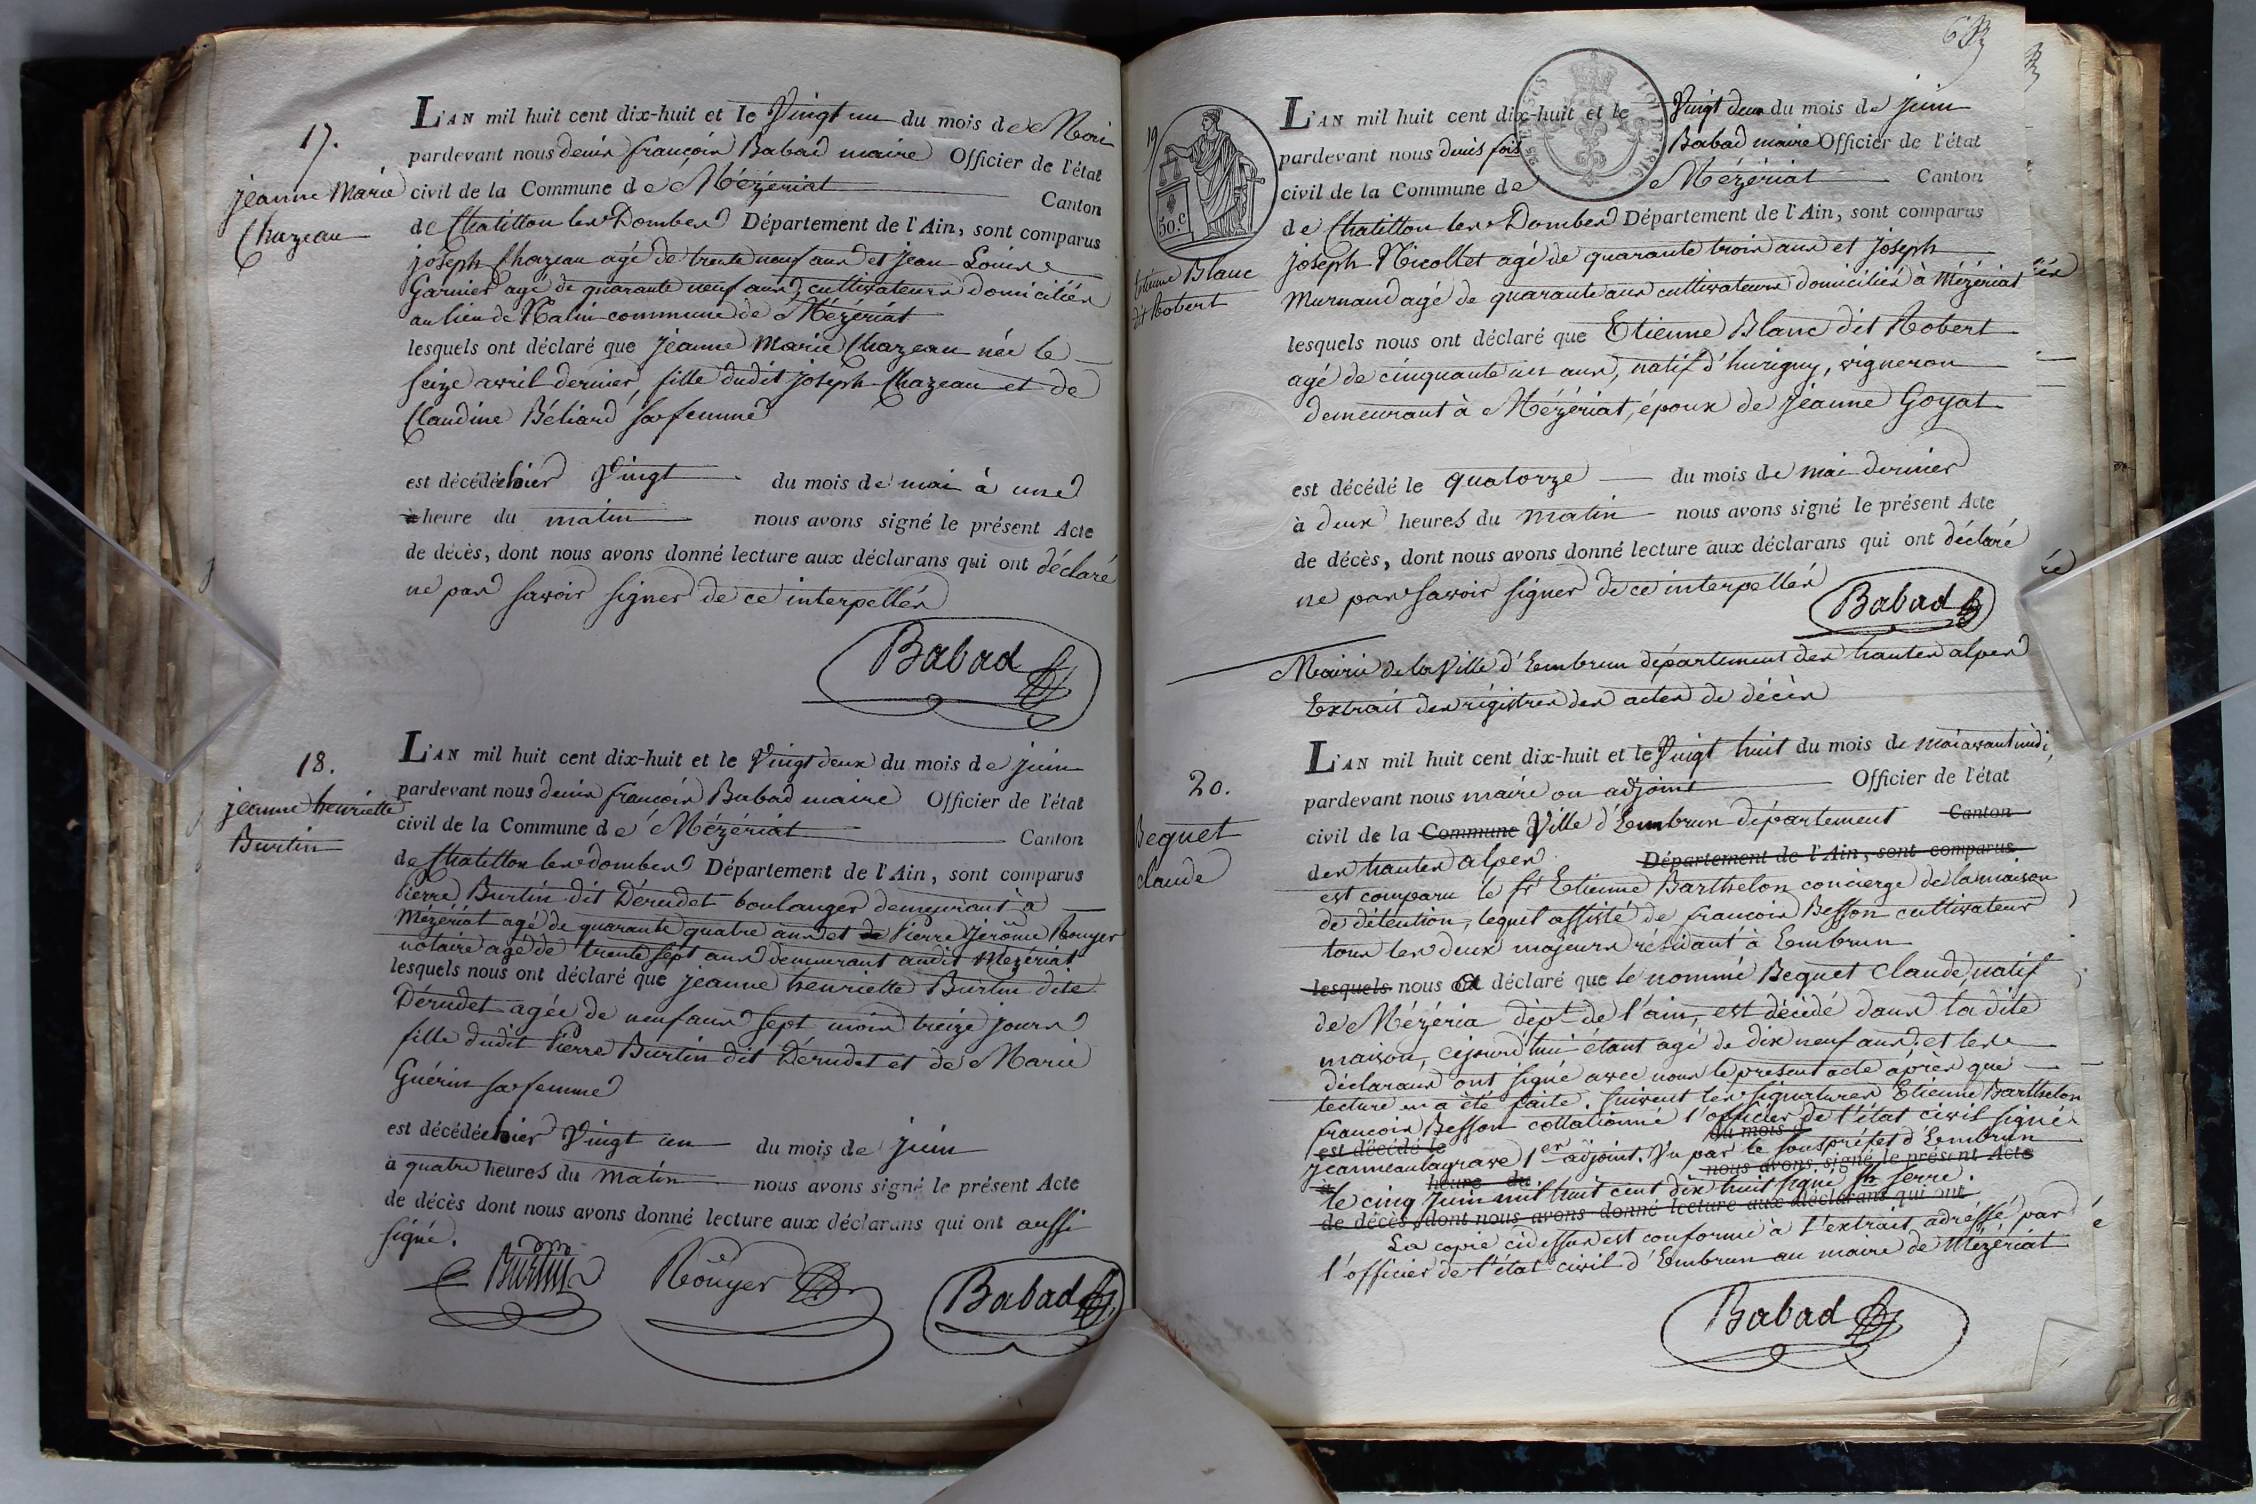 17.
jeanne Marie
Chazeau
L'AN mil huit cent dix-huit et le Vingt un du mois de Mai
pardevant nous denis françois Babad maire Officier de l'état
civil de la Commune de Mézériat Canton
de Chatillon les Dombes Département de l'Ain, sont comparus
joseph Chazeau agé de trente neuf ans et jean Louis
Garnier agé de quarante neuf ans, cultivateurs domiciliés
au lieu de commune de Mézériat
lesquels ont déclaré que jeanne Marie Chazeau née le
seize avril dernier, fille dudit joseph Chazeau et de
Claudine Béliard sa femme
est décédée hier Vingt du mois de mai à une
à heure du matin nous avons signé le présent Acte
de décès, dont nous avons donné lecture aux déclarans qui ont déclaré
ne pas savoir signer de ce interpellés
Babad
18.
jeanne henriette
Burtin
L'AN mil huit cent dix-huit et le Vingt deux du mois de juin
pardevant nous denis françois Babad maire Officier de l'état
civil de la Commune de Mézériat Canton
de Chatillon les dombes Département de l'Ain, sont comparus
Pierre Burtin dit Dérudet boulanger demeurant à
Mézériat agé de quarante quatre ans et de Pierre Jérôme Rouyer
notaire agé de trente sept ans demeurant audit Mézériat
lesquels nous ont déclaré que jeanne henriette Burtin dite
Dérudet agée de neuf ans sept mois treize jours
fille dudit Pierre Burtin dit Dérudet et de Marie
Guérin sa femme
est décédée hier Vingt un du mois de juin
à quatre heures du matin nous avons signé le présent Acte
de décès dont nous avons donné lecture aux déclarans qui ont aussi
signé.
Burtin Rouyer Babad
19
50.c
Etienne Blanc
dit Robert
L'AN mil huit cent dix-huit et le Vingt deux du mois de juin
pardevant nous denis fois Babad maire Officier de l'état
civil de la Commune de Mézériat Canton
de Chatillon les Dombes Département de l'Ain, sont comparus
joseph Nicollet agé de quarante trois ans et joseph
Murnaud agé de quarante ans cultivateurs domiciliés à Mézériat
lesquels nous ont déclaré que Etienne Blanc dit Robert
agé de cinquante un ans, natif d'hurigny, vigneron
demeurant à Mézériat, époux de jeanne Goyat
est décédé le quatorze du mois de mai dernier
à deux heures du matin nous avons signé le présent Acte
de décès, dont nous avons donné lecture aux déclarans qui ont déclaré
ne pas savoir signer de ce interpellés
Babad
Mairie de la Ville d'Embrun département des hautes alpes
Extrait des régistres des actes de décès
20.
Bequet
Claude
L'AN mil huit cent dix-huit et le Vingt huit du mois de mai avant midi,
pardevant nous maire ou adjoint Officier de l'état
civil de la Commune Ville d'Embrun département Canton
des hautes alpes Département de l'Ain, sont comparus
est comparu le sr Etienne Barthelon concierge de la maison
de détention, lequel assisté de françois Besson cultivateur
tous les deux majeurs résidant à Embrun
lesquels nous a déclaré que le nommé Bequet Claude, natif
de Mézéria dépt de l'ain, est décédé dans la dite
maison, cejourd'hui étant agé de dix neuf ans, et les
déclarans ont signé avec nous le présent acte après que
lecture en a été faite. Suivent les signatures Etienne Barthelon
françois Besson collationné l'officier de l'état civil signé
est décédé le du mois d
jeanneaulagrave 1er adjoint. Vu par le souspréfet d'Embrun
nous avons signé le présent Acte
à heure du
le cinq juin mil huit cent dix huit signé Serre.
de décès, dont nous avons donné lecture aux déclarans qui ont
La copie cidessus est conforme à l'extrait adressé par
l'officier de l'état civil d'Embrun au maire de Mézériat
Babad